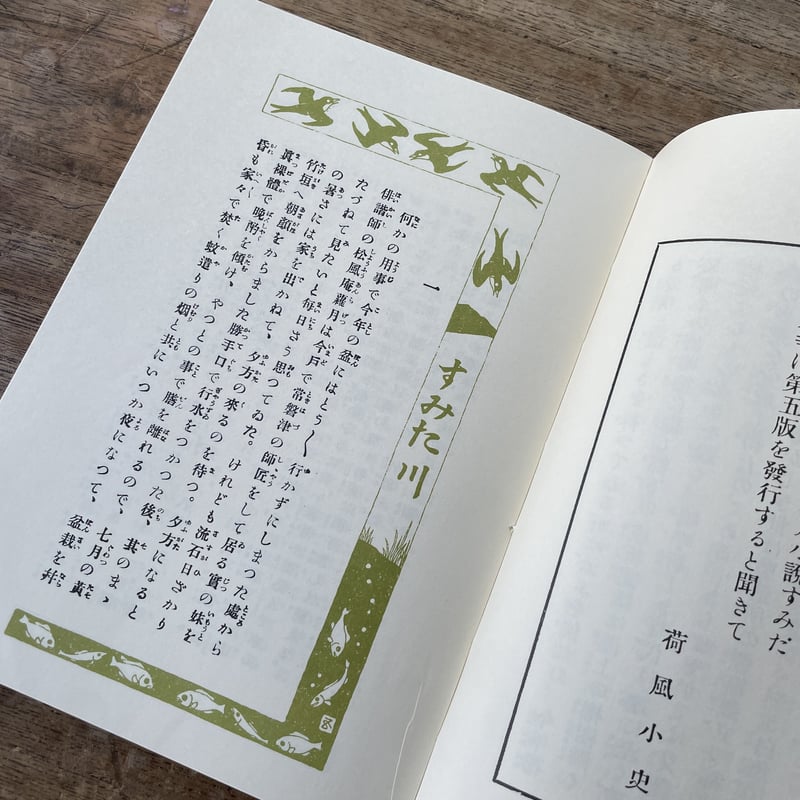 說すみだ
に第五版を發行すると聞きて
荷風小史
すみた川
一
何かの用事で今年の盆にはとう〳〵行かずにしまつた處から
俳諧師の松風庵蘿月は今戸で常磐津の師匠をして居る實の妹を
たづねて見たいと毎日さう思つてゐた。けれども流石日ざかり
の暑さには家を出かねて、夕方の來るのを待つ。夕方になると
竹垣へ朝顔をからました勝手口で行水をつかつた後、其のまゝ
眞裸體で晩酌を傾け、やつとの事で膳を離れるので、七月の黃
昏も家々で焚く蚊遣りの烟と共にいつか夜になつて、盆栽を幷